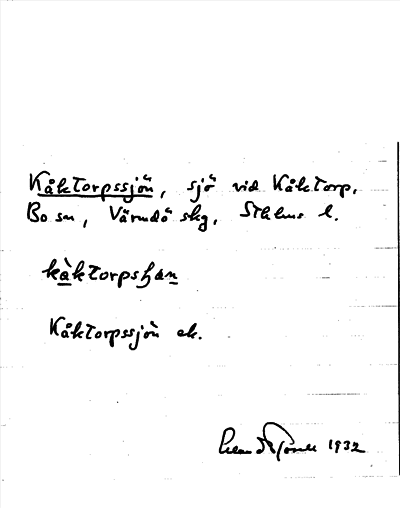 Kåktorpssjön, sjö vid Kåktorp,
Bo sn, Värmdö skg, Sthlms l.
kåktorpsʃɑn
Kåktorpssjön ek.
1932